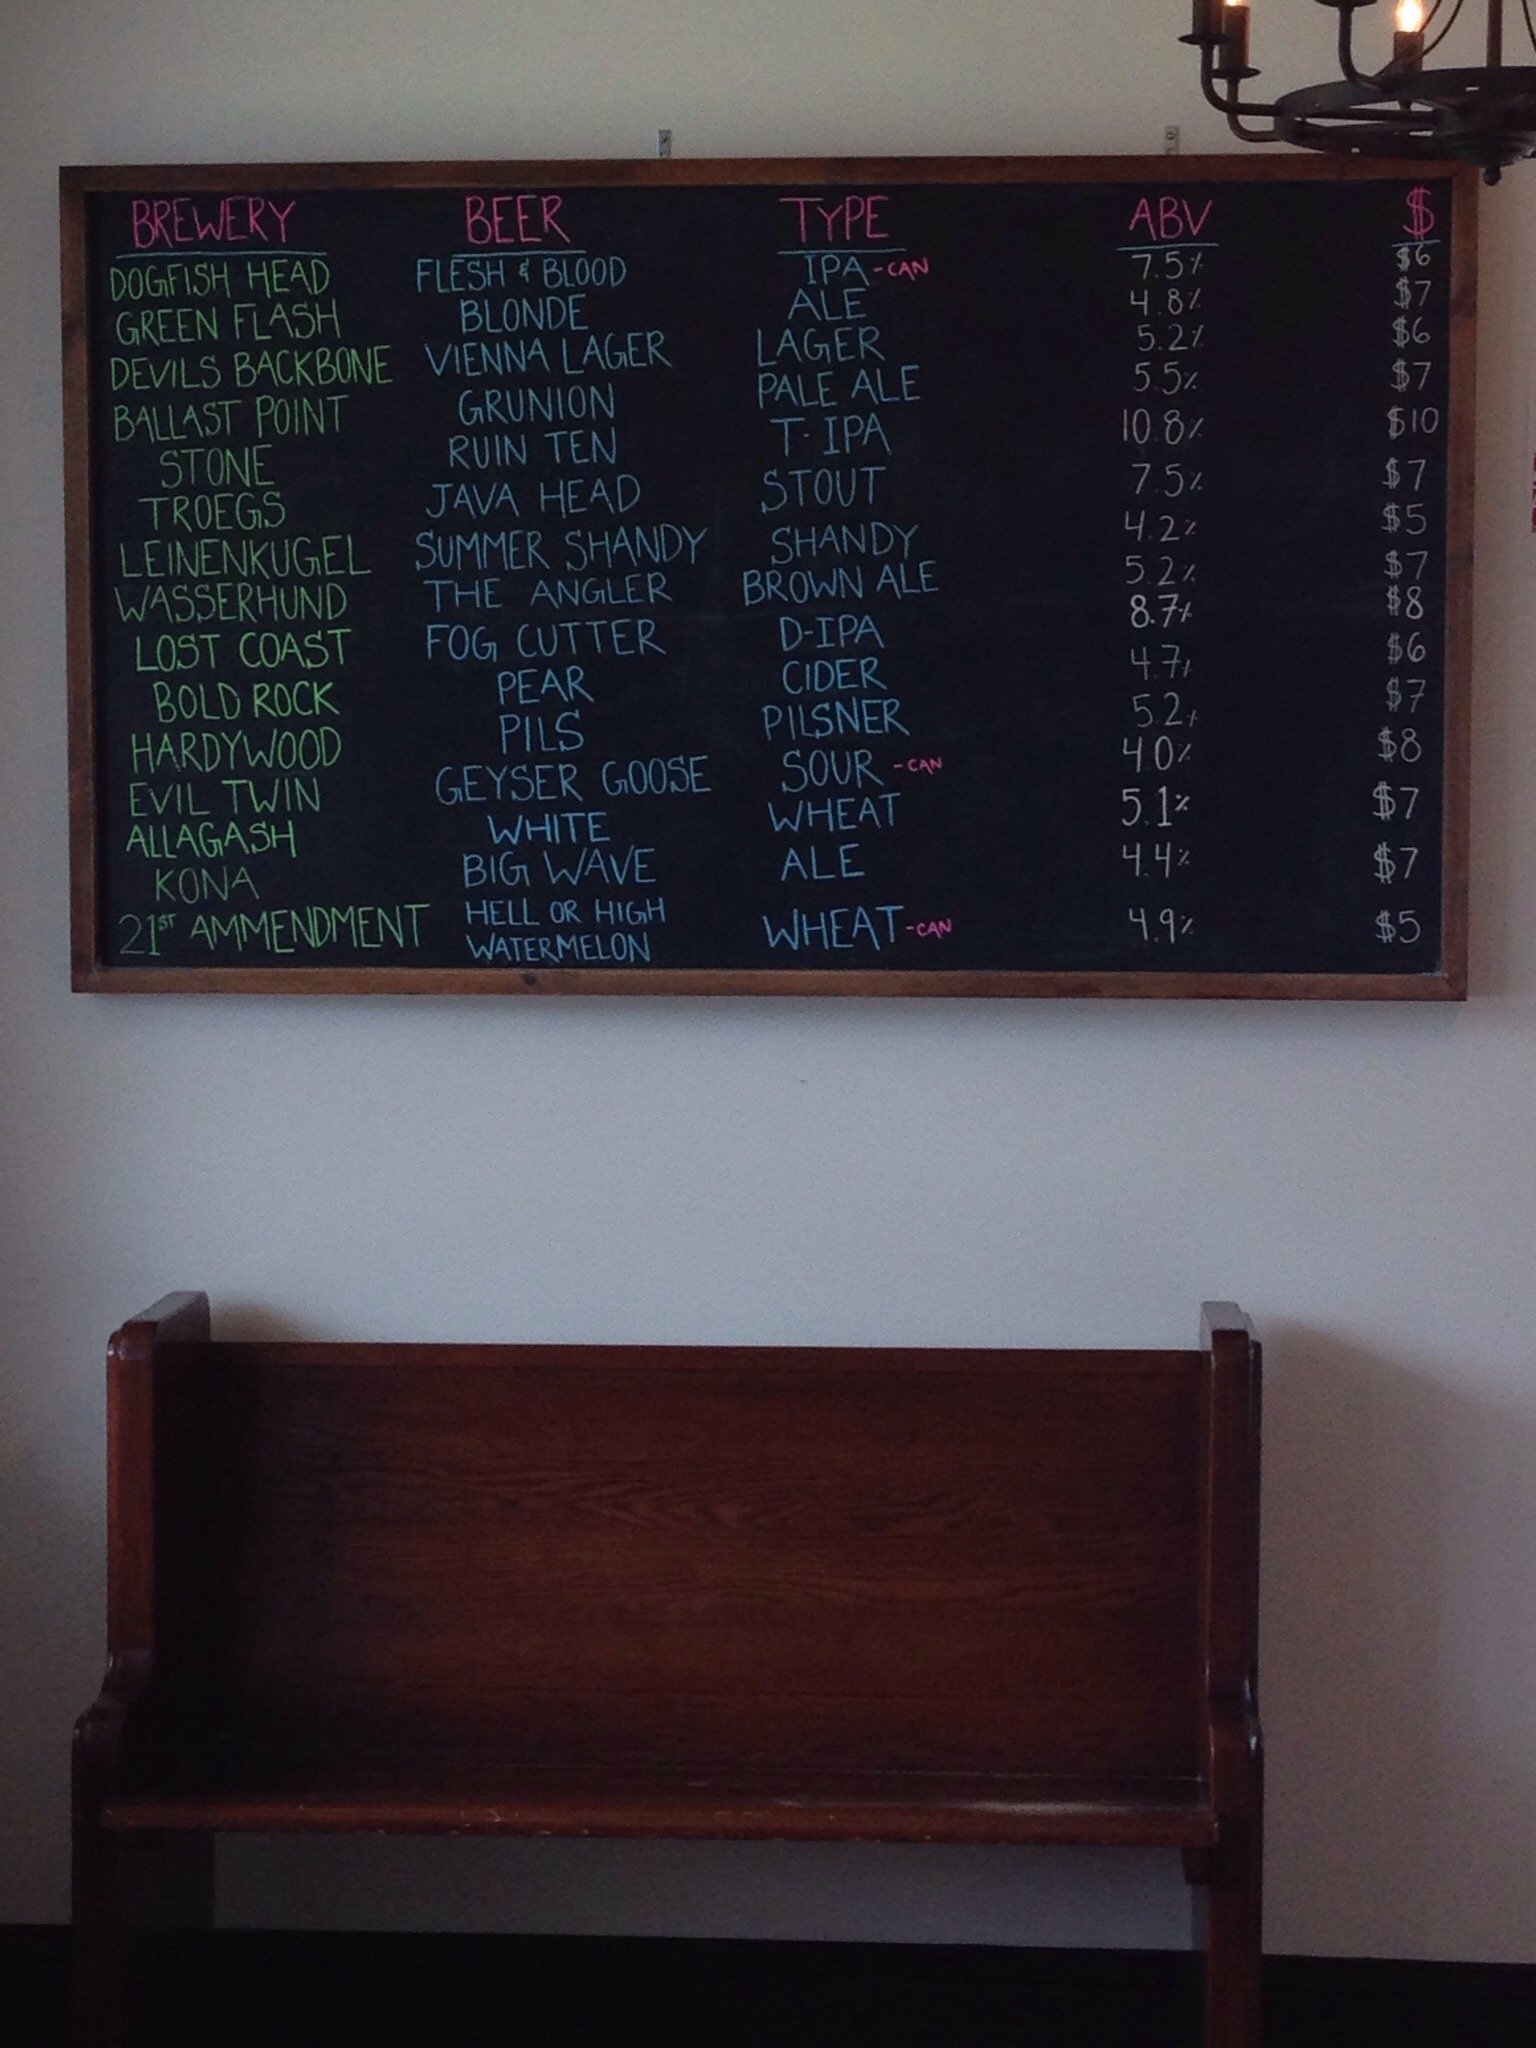 BREWERY BEER TYPE ABV $
DOGFISH HEAD FLESH & BLOOD IPA -CAN 7.5% $6
GREEN FLASH BLONDE ALE 4.8% $7
DEVILS BACKBONE VIENNA LAGER LAGER 5.2% $6
BALLAST POINT GRUNION PALE ALE 5.5% $7
STONE RUIN TEN T-IPA 10.8% $10
TROEGS JAVA HEAD STOUT 7.5% $7
LEINENKUGEL SUMMER SHANDY SHANDY 4.2% $5
WASSERHUND THE ANGLER BROWN ALE 5.2% $7
LOST COAST FOG CUTTER D-IPA 8.7% $8
BOLD ROCK PEAR CIDER 4.7% $6
HARDYWOOD PILS PILSNER 5.2% $7
EVIL TWIN GEYSER GOOSE SOUR -CAN 4.0% $8
ALLAGASH WHITE WHEAT 5.1% $7
KONA BIG WAVE ALE 4.4% $7
21ST AMMENDMENT HELL OR HIGH WATERMELON WHEAT -CAN 4.9% $5